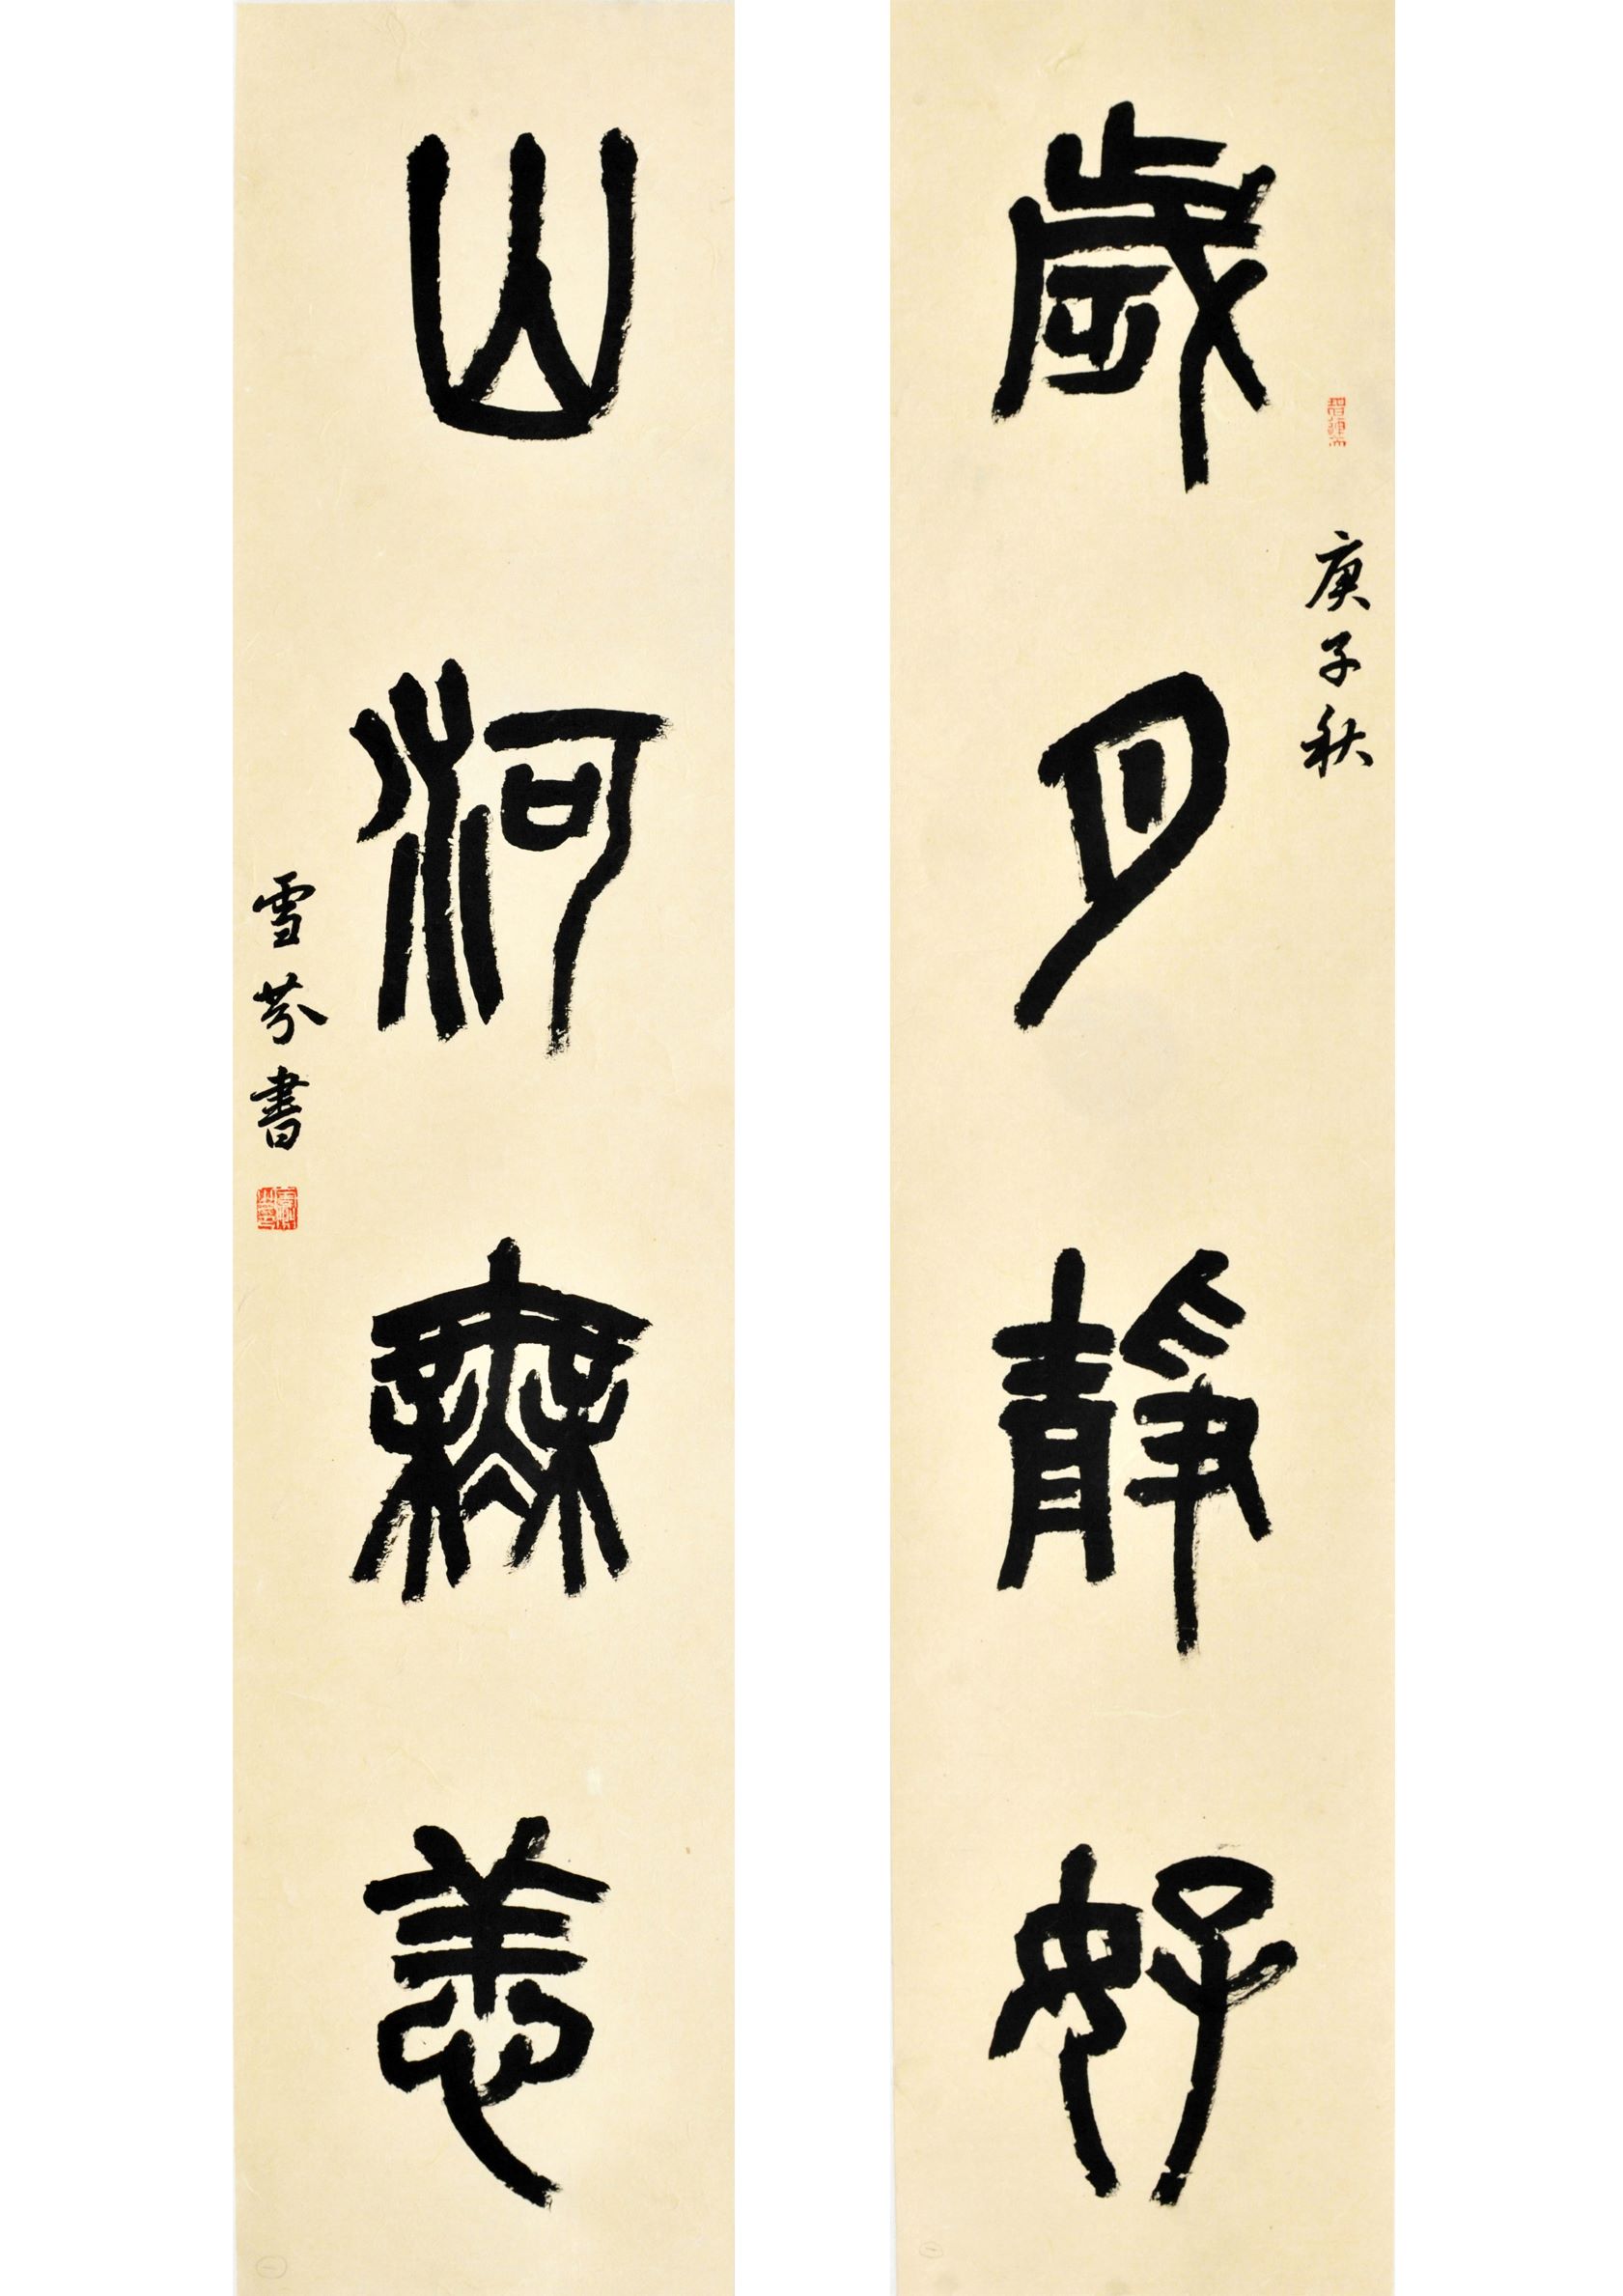 歲月靜好
庚子秋
山河無恙
雪芬書